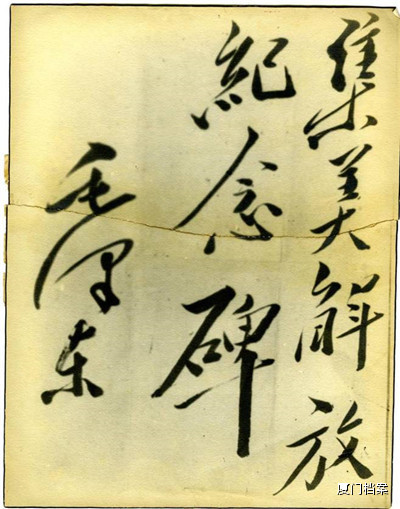 集美解放
紀念碑
毛泽东
厦门档案